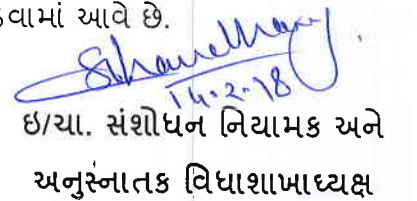 વામાં આવે છે.
14.2.18
ઇ/ચા. સંશોધન નિયામક અને
અનુસ્નાતક વિધાશાખાધ્યક્ષ